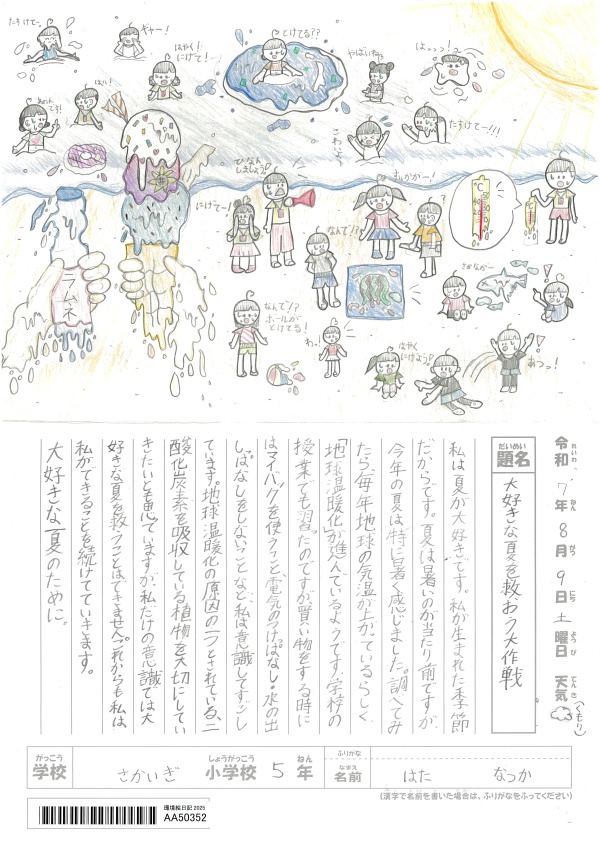 たすけてー
ギャー!
はやく!
にげて!
とけてる??
やばいねぇ
はっっっ!
はい!
たすけてー!!!
こわいよ
ひなん
しましょう
まぃがー!
にげてー!
なんで!?
℃
℃
さかながー
なんで!?
ボールが
とけてる!
わっ!
はやく
にげよう
あつっ!
ラムネ
令和7年8月9日土曜日 天気(くもり)
れいわ ねん がつ にち ようび てんき
だいめい
題名 大好きな夏を救おう大作戦
私は夏が大好きです。私が生まれた季節
だからです。夏は暑いのが当たり前ですが、
今年の夏は特に暑く感じました。調べてみ
たら、毎年地球の気温が上がっているらしく、
「地球温暖化が進んでいるようです!学校の
授業でも習ったのですが買い物をする時に
はマイバックを使うこと、電気のつけっぱなし・水の出
しっぱなしをしないことなど、私は意識してすごし
ています。地球温暖化の原因の一つとされている、二
酸化炭素を吸収している植物を大切にしてい
きたいとも思っていますが、私だけの意識では大
好きな夏を救うことはできません。これからも私は
私ができることを続けてていきます。
大好きな夏のために。
がっこう しょうがっこう ねん ふりがな
学校 さかいぎ 小学校 5年 名前 はた なつか
なまえ
(漢字で名前を書いた場合は、ふりがなをふってください)
環境絵日記 2025
AA50352